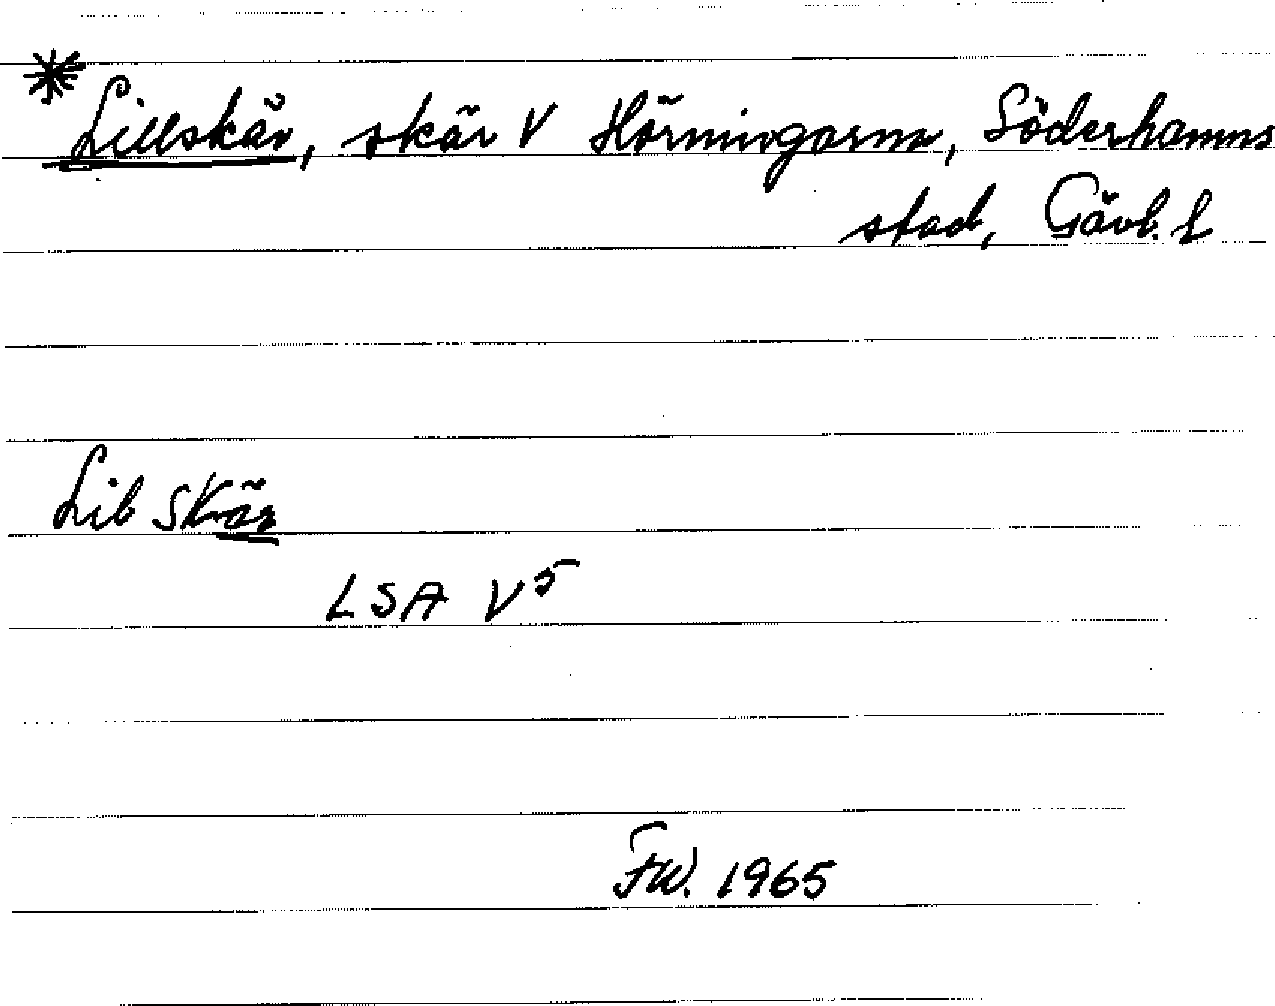 * Lillskär, skär V Hörningarna, Söderhamns
stad, Gävl. L
Lil Skär
LSA V5
FW. 1965